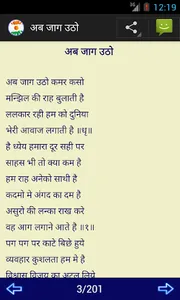 12:19
अब जाग उठो
अब जाग उठो
अब जाग उठो कमर कसो
मन्झिल की राह बुलाती है
ललकार रही हम को दुनिया
भेरी आवाज लगाती है ॥धृ॥
है ध्येय हमारा दूर सही पर
साहस भी तो क्या कम है
हम राह अनेको साथी है
कदमो मे अंगद का दम है
असुरो की लन्का राख करे
वह आग लगाने आते है ॥१॥
पग पग पर काटे बिछे हुये
व्यवहार कुशलता हम मे है
विश्वास विजय का अटल लिये
3/201